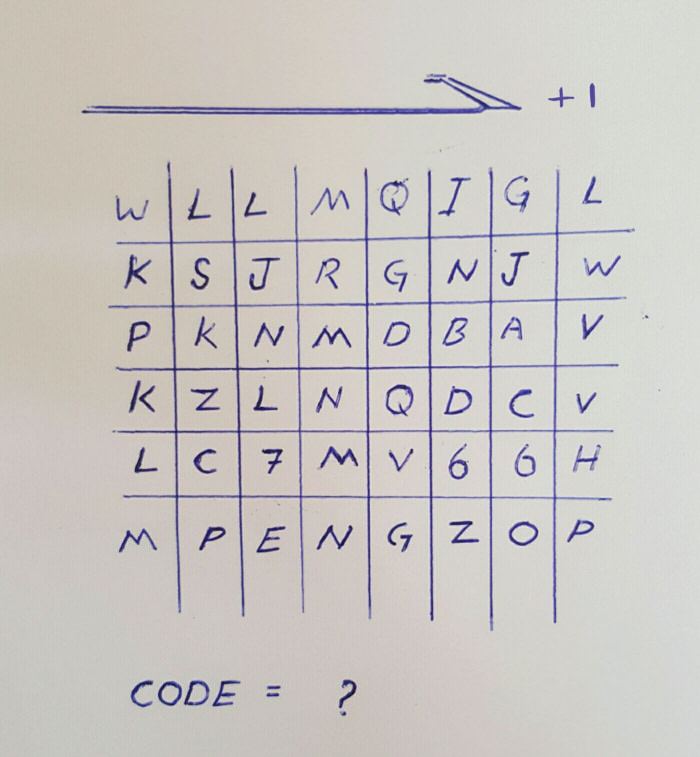 +1
W L L M Q I G L
K S J R G N J W
P K N M D B A V
K Z L N Q D C V
L C 7 M V 6 6 H
M P E N G Z O P
CODE = ?